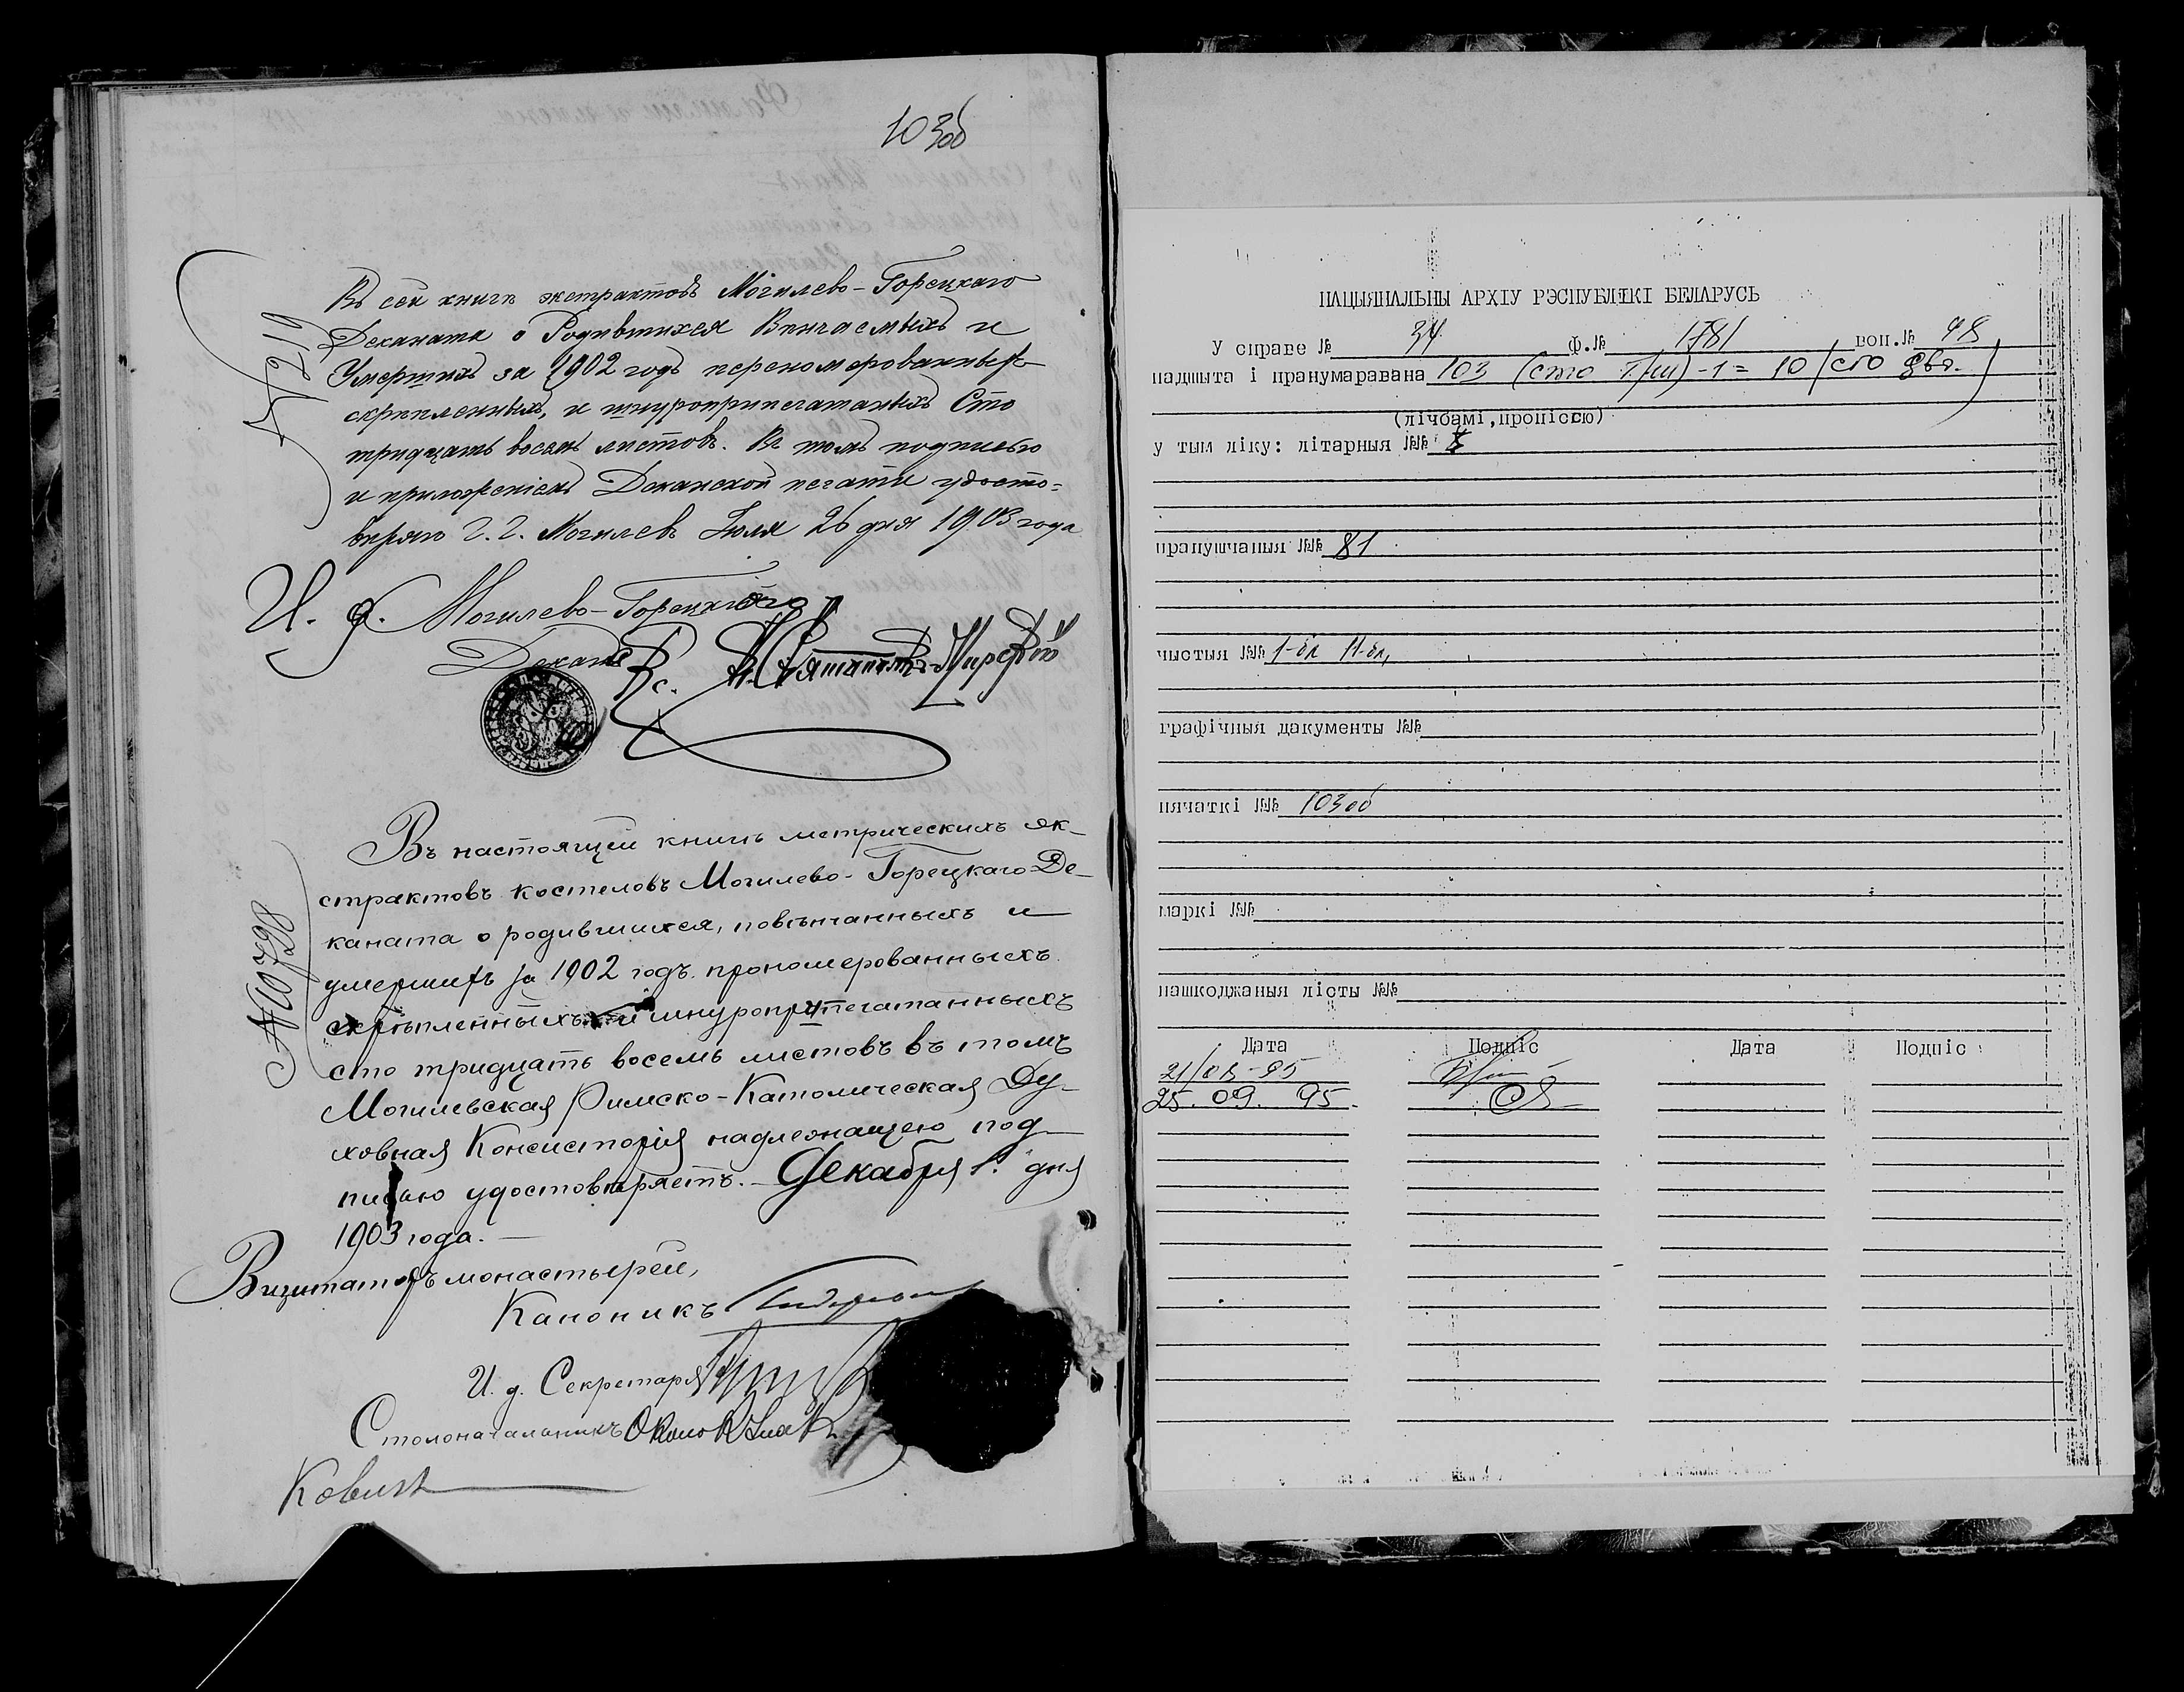 103об
№ 219
Въ сей книге экстрактовъ Могилево-Горецкаго
Деканата о Родившихся Венчаемыхъ и
Умершихъ за 1902 годъ перономерованныхъ
скрепленныхъ, и шнуроприпечатаныхъ Сто
тридцать восемь листовъ. Въ томъ подписью
и приложеніемъ Деканской печати удосто=
веряю г. г. Могилев Іюля 26 дня 1903 года
И. д. Могилево-Горецкаго
Декана Кс.
№ 10798
Въ настоящей книгѣ метрическихъ эк-
страктовъ костеловъ Могилево-Горецкаго Де-
каната о родившихся, повѣнчанныхъ и
умершихъ за 1902 годъ прономерованныхъ
скрѣпленныхъ и шнуроприпечатанныхъ
сто тридцать восемь листовъ въ томъ
Могилевская Римско-Католическая Ду-
ховная Консисторія надлежащею под-
писью удостовѣряетъ. – Декабря 1 дня
1903 года. –
Визитаторъ монастырей,
Каноникъ
И. д. Секретаря
Столоначальникъ
НАЦЫЯНАЛЬНЫ АРХІУ РЭСПУБЛІКІ БЕЛАРУСЬ
У справе № 34 ф.№ 1781 воп.№ 48
падшыта і пранумаравана 103 (сто три) -1= 10 (сто два.)
(лічбамі,пропіссю)
у тым ліку: літарныя №№
прапушчаныя №№ 81
чыстыя №№
графічныя дакументы №№
пячаткі №№ 103об
маркі №№
пашкоджаныя лісты №№
Дата Подпіс Дата Подпіс
21/08-95
25. 09. 95.